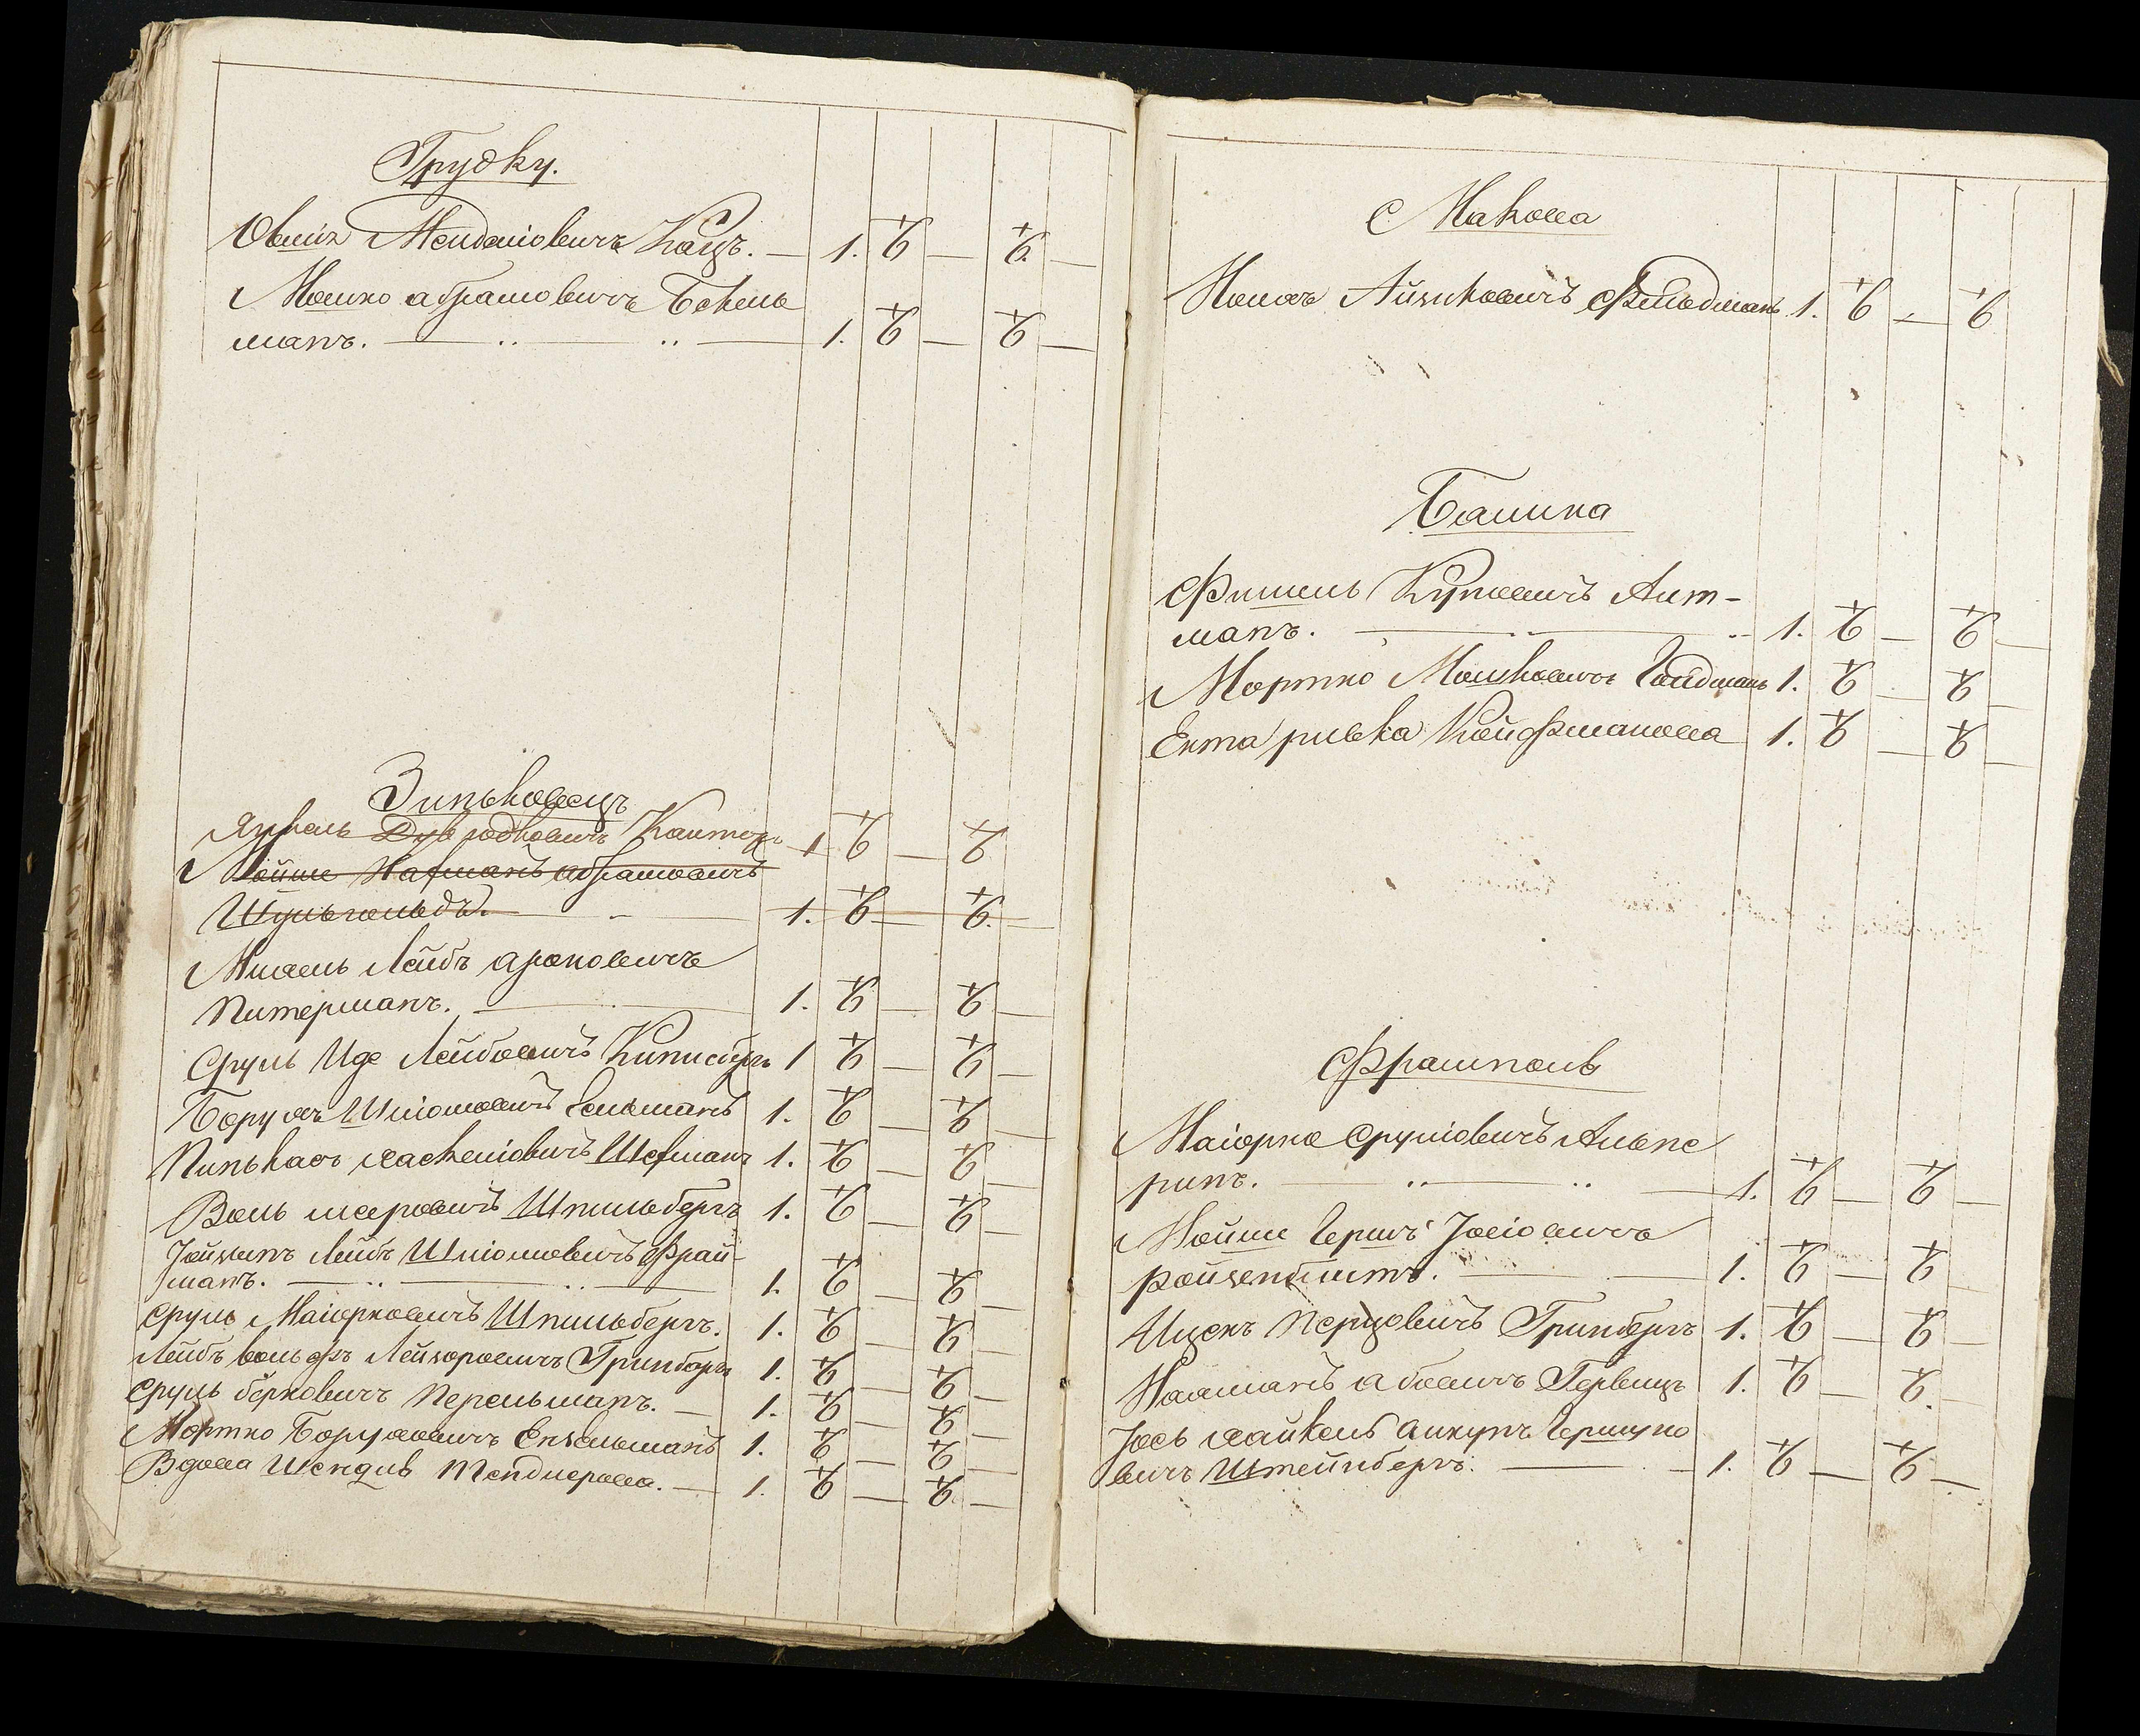 Грудку.
Овшія Менделіовичъ Кацъ. — 1. —
Мошко абрамовичъ Бекель
манъ. — 1. —
Зиньковецъ
Янкель Дув юдковичъ Канторъ 1 —
Мойше Нахманъ абрамовичъ
Шульгольдъ. — 1. —
Михель Лейбъ ароновичъ
Питерманъ. — 1. —
Сруль Иде Лейбовичъ 1 —
Борухъ Шліомовичъ Гельманъ 1. —
Пинькасъ хаскеліовичъ Шефманъ 1. —
Воль мееровичъ Шпильбергъ 1. —
Іойхипъ Лейбъ Шліомовичъ Фрай-
манъ. — 1. —
Сруль Маіорковичъ Шпильбергъ. 1. —
Лейбъ вольфъ Лейзоровичъ Гринбергъ 1. —
Сруль берковичъ Перельманъ. — 1. —
Мортко Боруховичъ Ензельманъ 1. —
Вдова Шендля Мендлерова. — 1. —
Макова
Монахъ Айзиковичъ Фельдманъ 1. —
Башина
Фишель Куповичъ Лит-
манъ. — 1. —
Мортко Мошковичъ Гольдманъ 1. —
Ента ривка Койфманова 1. —
Фрампель
Маіорко Сруліовичъ Альпе
ринъ. — 1. —
Мойше Гершъ Іосіовичъ
Ройзенблитъ. — 1. —
Ицекъ Перцовичъ Гринбергъ 1. —
Нахманъ абовичъ Гервицъ 1. —
Іось хайкель Анкупъ Гершко
вичъ Штейнбергъ. — 1. —